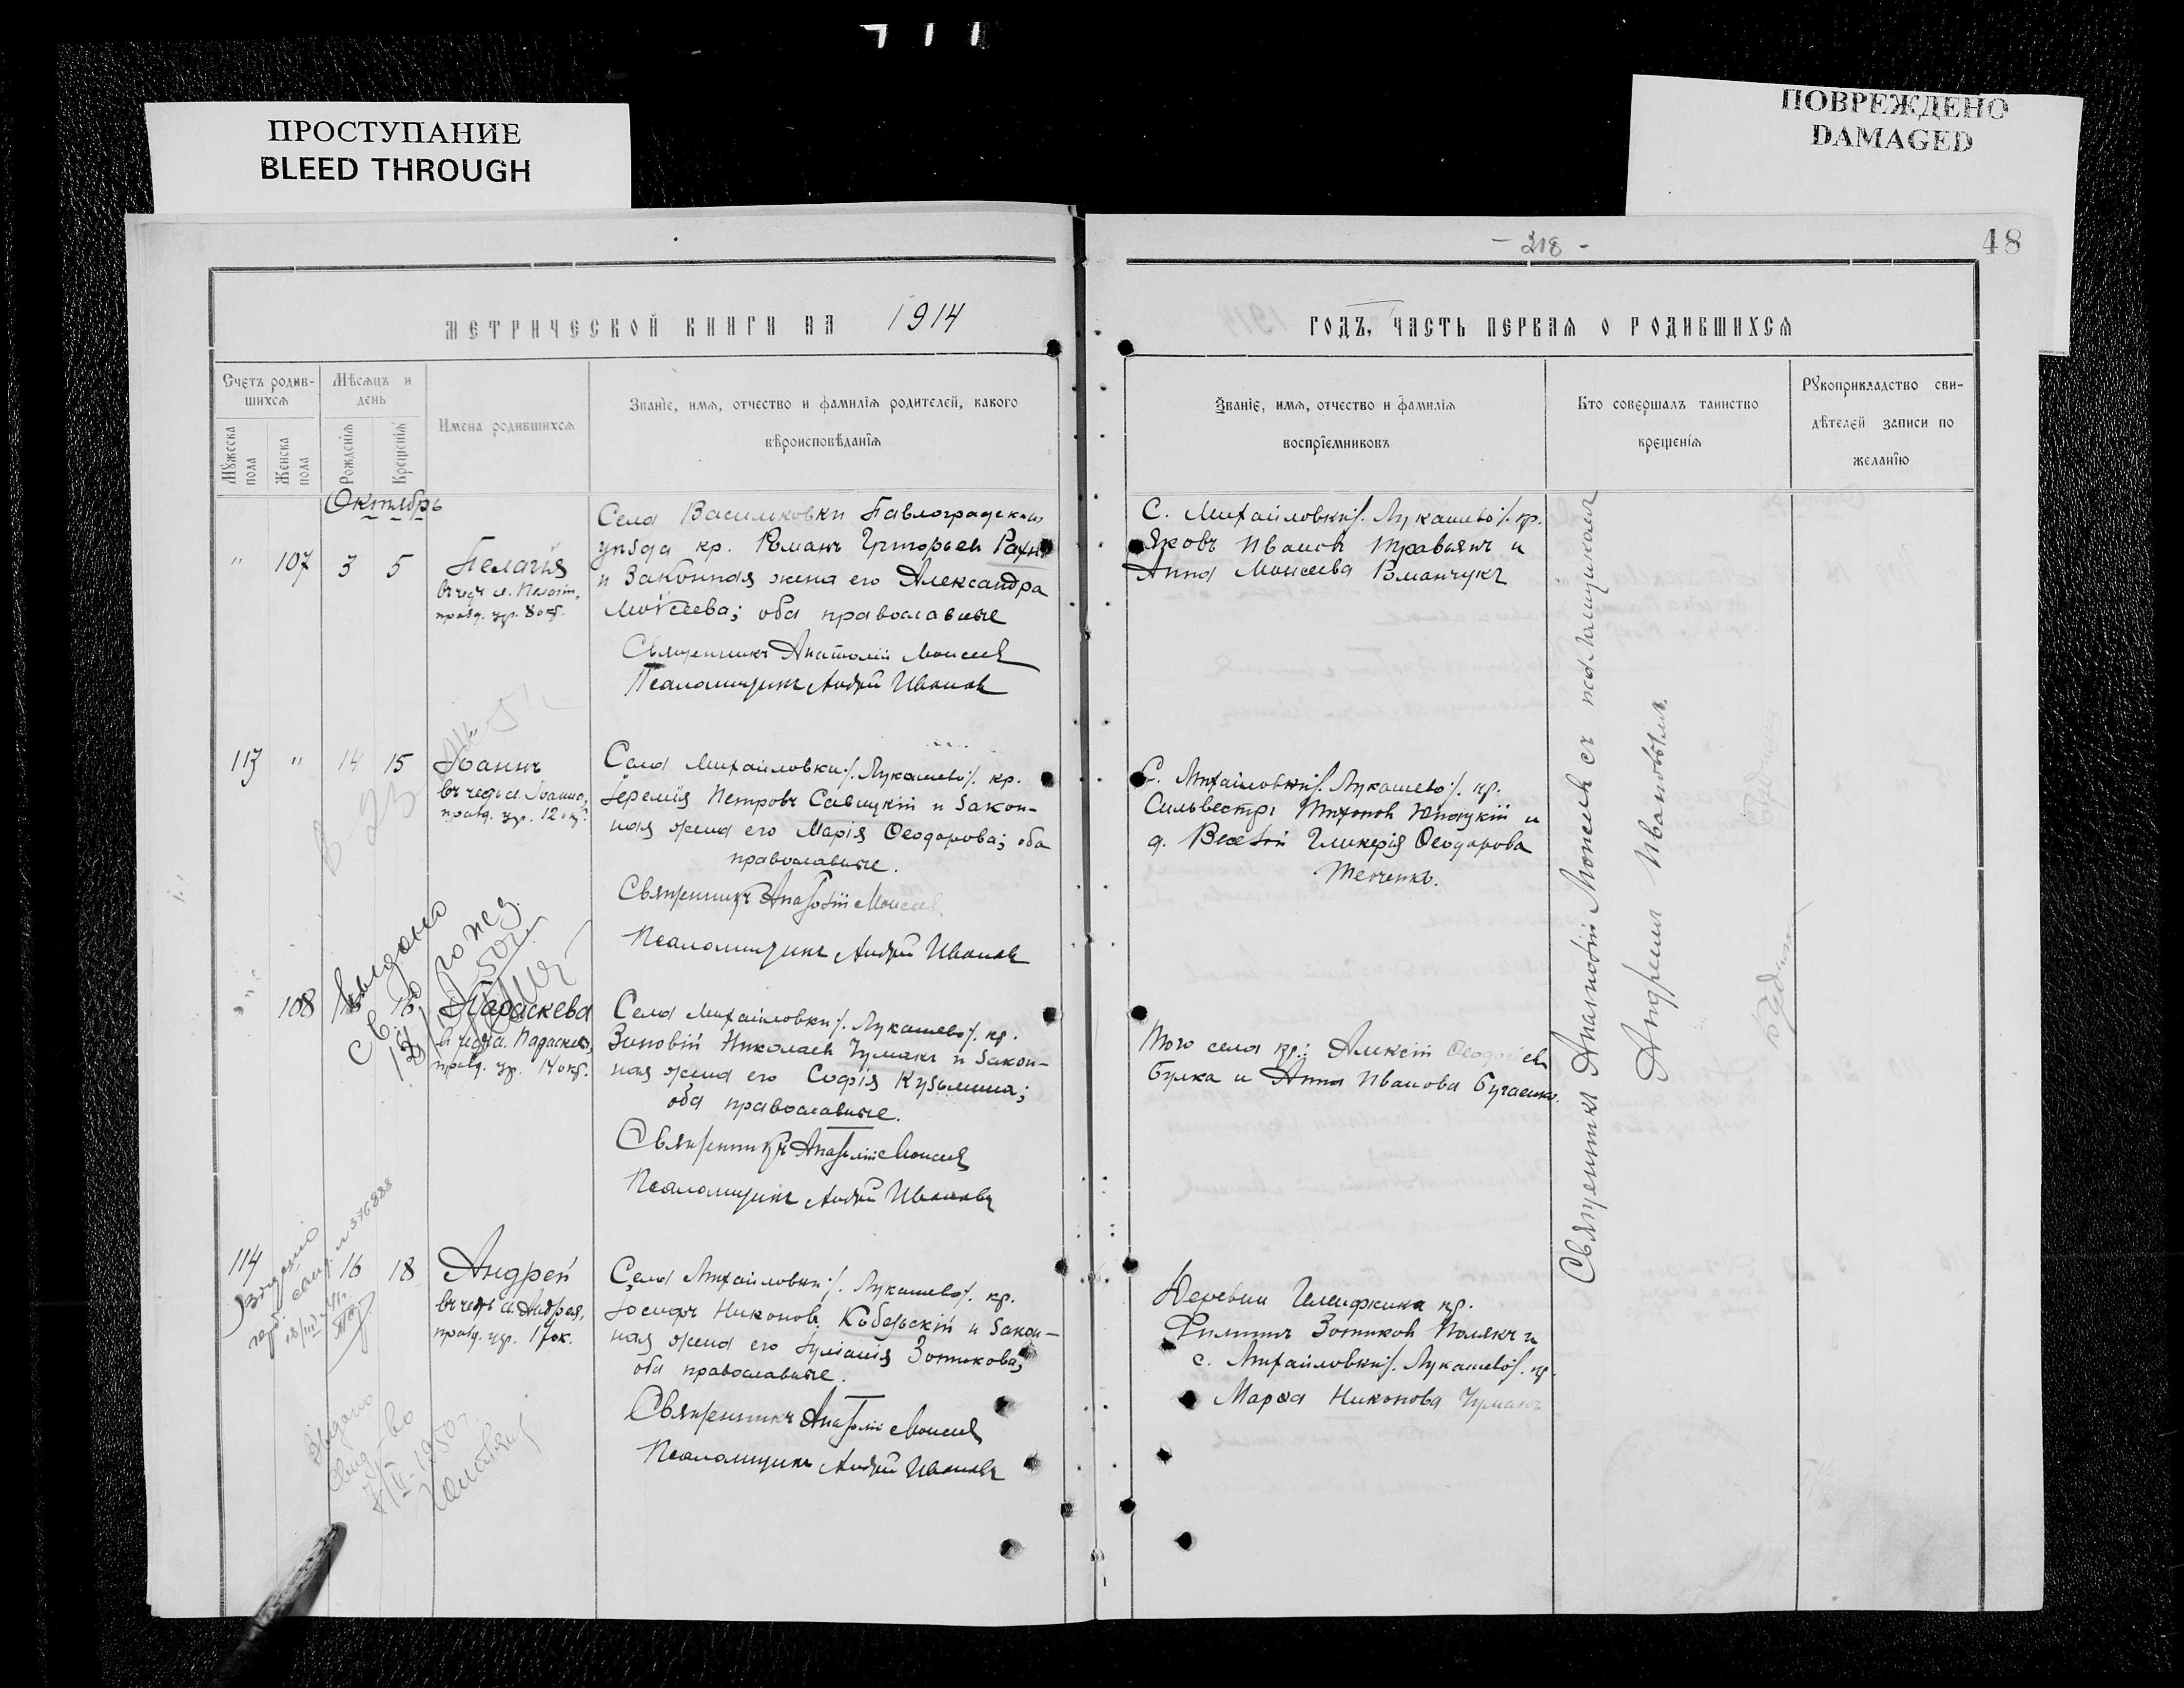 ПРОСТУПАНИЕ
BLEED THROUGH
ПОВРЕЖДЕНО
DAMAGED
- 218 -
48
МЕТРИЧЕСКОЙ КНИГИ НА 1914
ГОДЪ, ЧАСТЬ ПЕРВАЯ О РОДИВШИХСЯ
Счетъ родив-
шихся
Мѣсяцъ и
день
Мужеска
пола
Женска
пола
Рожденія
Крещенія
Имена родившихся
Званіе, имя, отчество и фамилія родителей, какого
вѣроисповѣданія
Званіе, имя, отчество и фамилія
воспріемниковъ
Кто совершалъ таинство
крещенія
Рукоприкладство сви-
дѣтелей записи по
желанію
Октябрь
" 107 3 5
Пелагія
въ честь м. Пелагіи,
празд. цр. 8 окт.
Села Васильковки Павлоградскаго
уѣзда кр. Романъ Григорьевъ
и законная жена его Александра
Моѵсеева; оба православные
Священникъ Анатолій Моисеевъ
Псаломщикъ Андрей Ивановъ
С. Михайловки /. Лукашево /. кр.
Яковъ Ивановъ Травьянъ и
Анна Моисеева Романчукъ
113 " 14 15
Іоаннъ
въ честь св. Іоанна,
празд. цр. 12 окт.
Села Михайловки /. Лукашево /. кр.
Іеремія Петровъ Савицкій и закон-
ная жена его Марія Ѳеодорова; оба
православные.
Священникъ Анатолій Моисеевъ
Псаломщикъ Андрей Ивановъ
С. Михайловки /. Лукашево /. кр.
Сильвестръ Тихоновъ и
д. Гликерія Ѳеодорова
108
Параскева
празд. цр. 14 окт.
Села Михайловки /. Лукашево /. кр.
Зиновій Николаевъ Чумакъ и закон-
ная жена его Софія Кузьмина;
оба православные.
Священникъ Анатолій Моисеевъ
Псаломщикъ Андрей Ивановъ
Того села кр.: Алексій
Булка и Анна Иванова
114 16 18
Андрей
въ честь св. Андрея,
празд. цр. 17 ок.
Села Михайловки /. Лукашево /. кр.
Іосифъ Никоновъ Кобельскій и закон-
ная жена его Іуліанія Зотикова;
оба православные.
Священникъ Анатолій Моисеевъ
Псаломщикъ Андрей Ивановъ
Деревни кр.
Филиппъ Зотиковъ Полякъ и
с. Михайловки /. Лукашево /. кр.
Марѳа Никонова Чумакъ
Священникъ Анатолій Моисеевъ съ псаломщикомъ
Андреемъ Ивановымъ.
Выдано